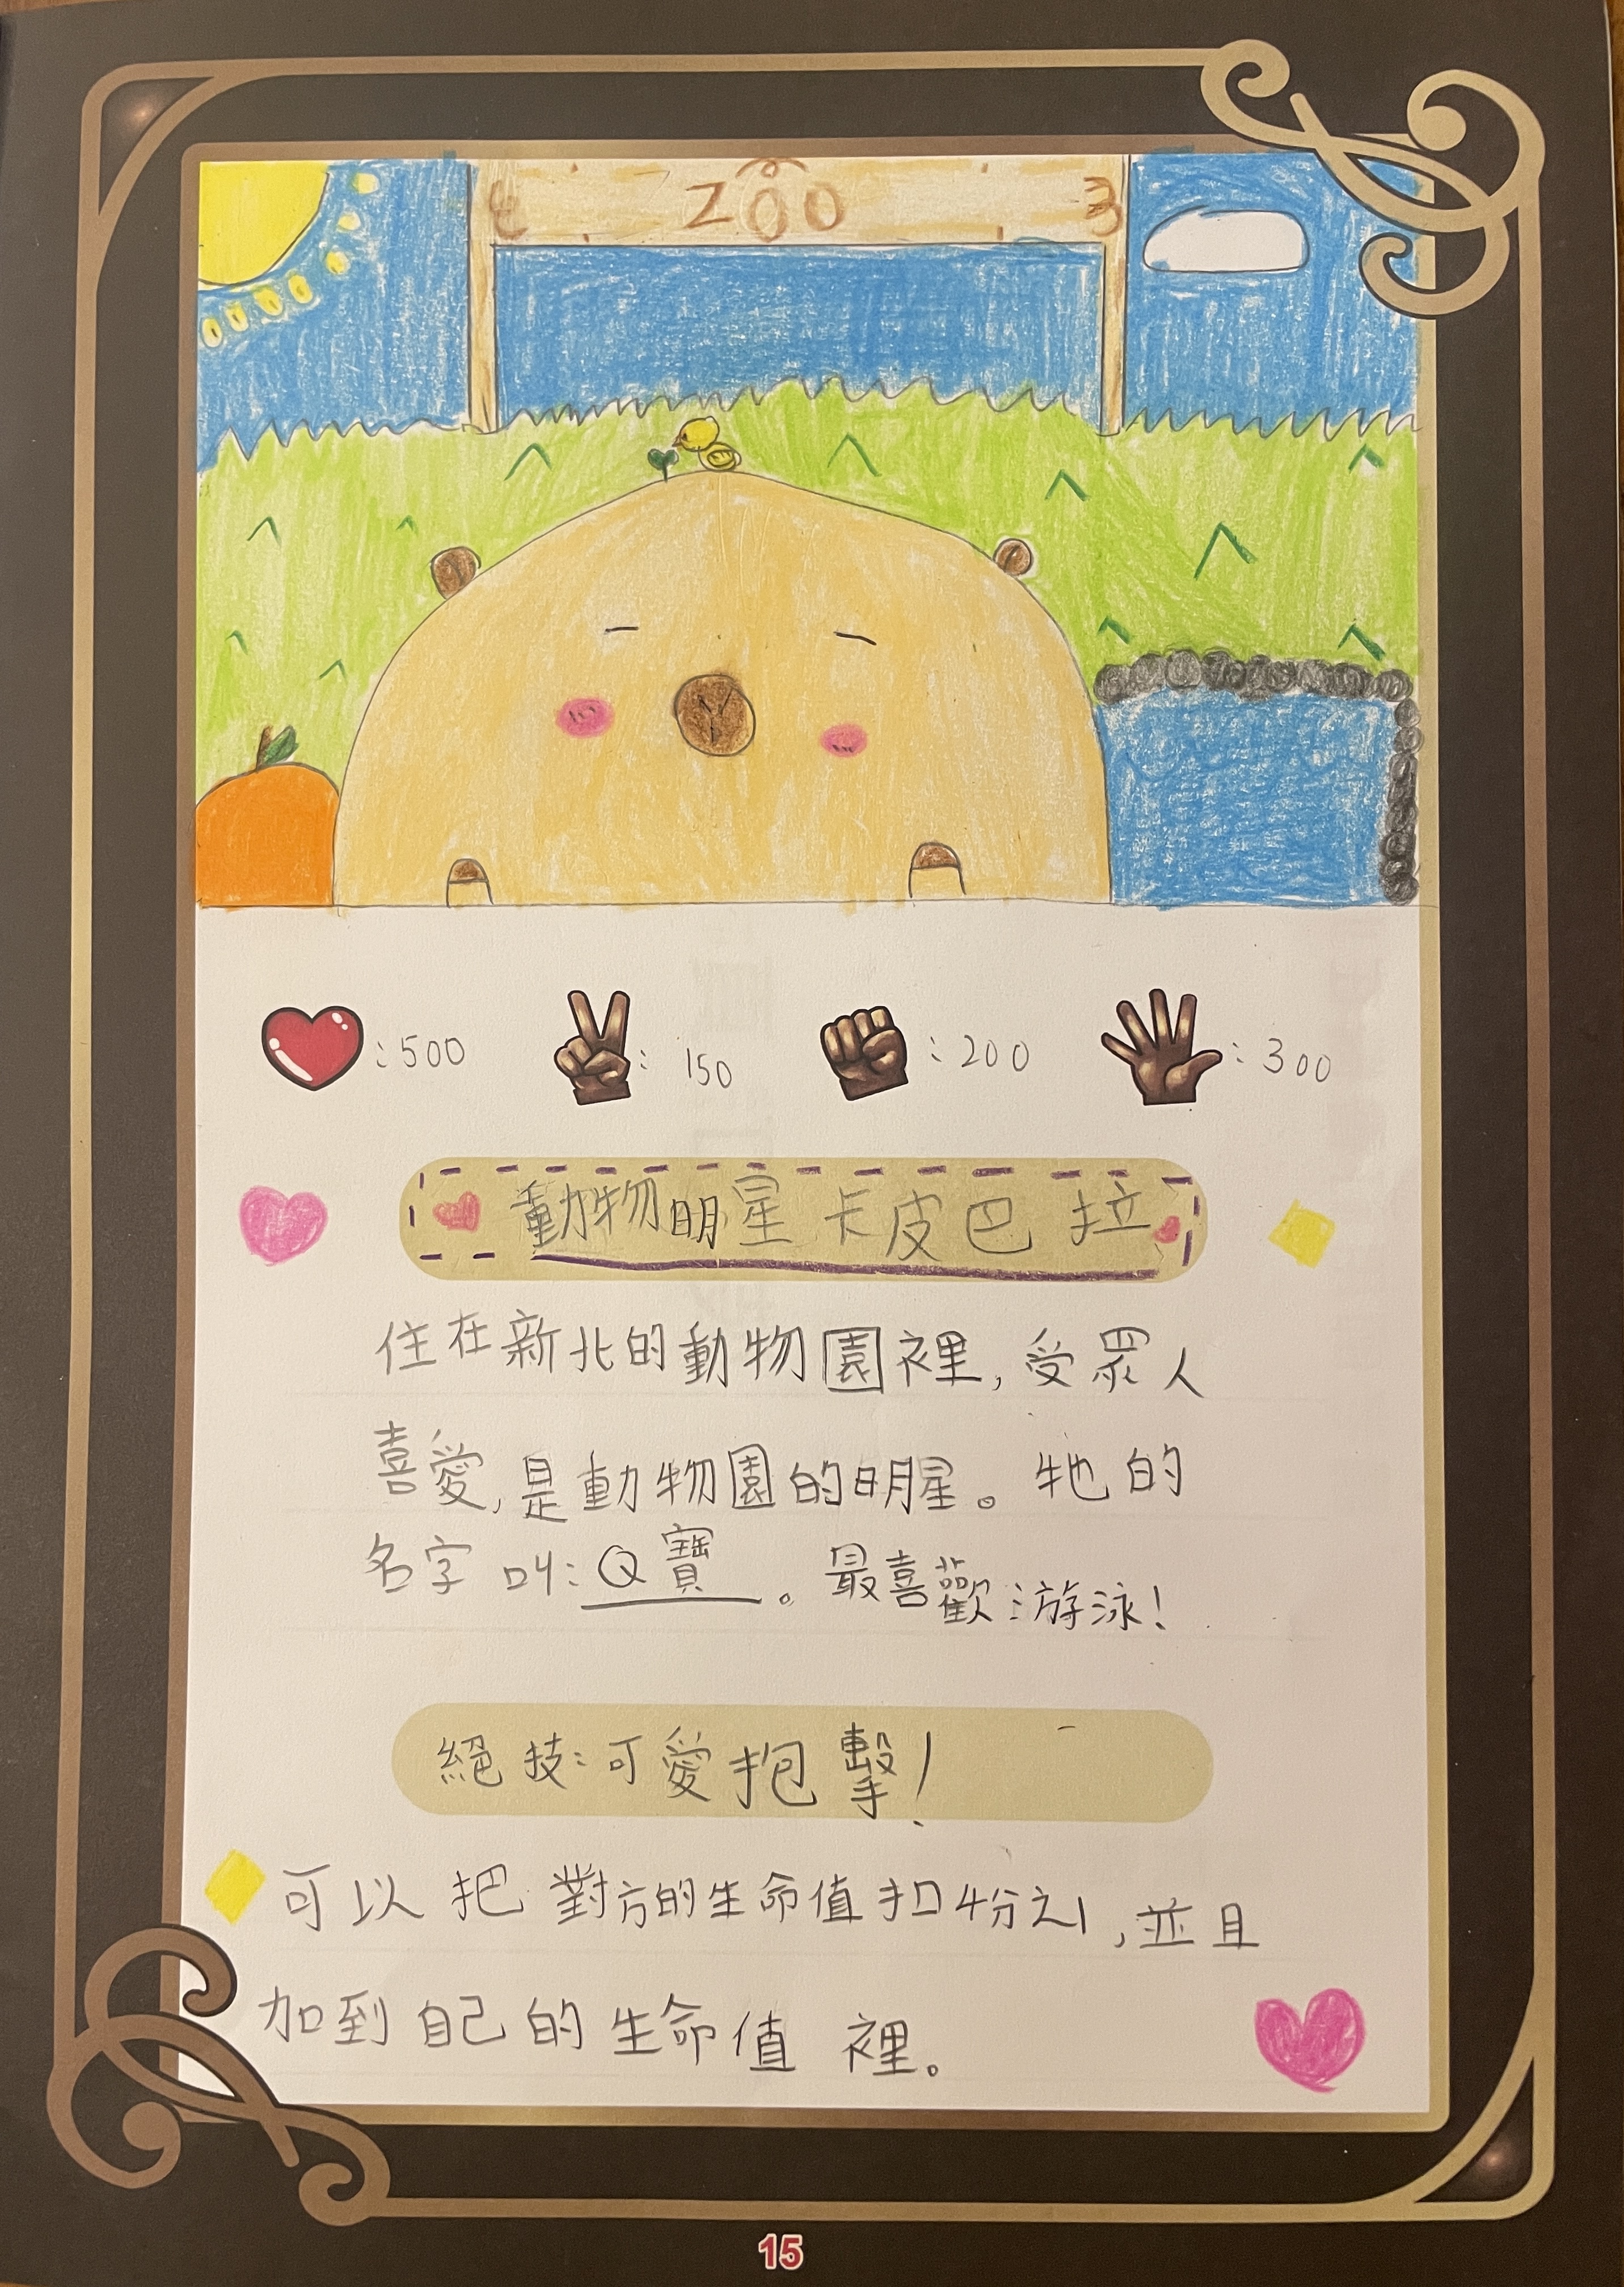 ZOO
:500 : 150 :200 :300
動物明星 卡皮巴拉
住在新北的動物園裡,受眾人
喜愛,是動物園的明星。牠的
名字叫:Q寶。最喜歡游泳!
絕技:可愛抱擊!
可以把對方的生命值扣4分之1,並且
加到自己的生命值裡。
15